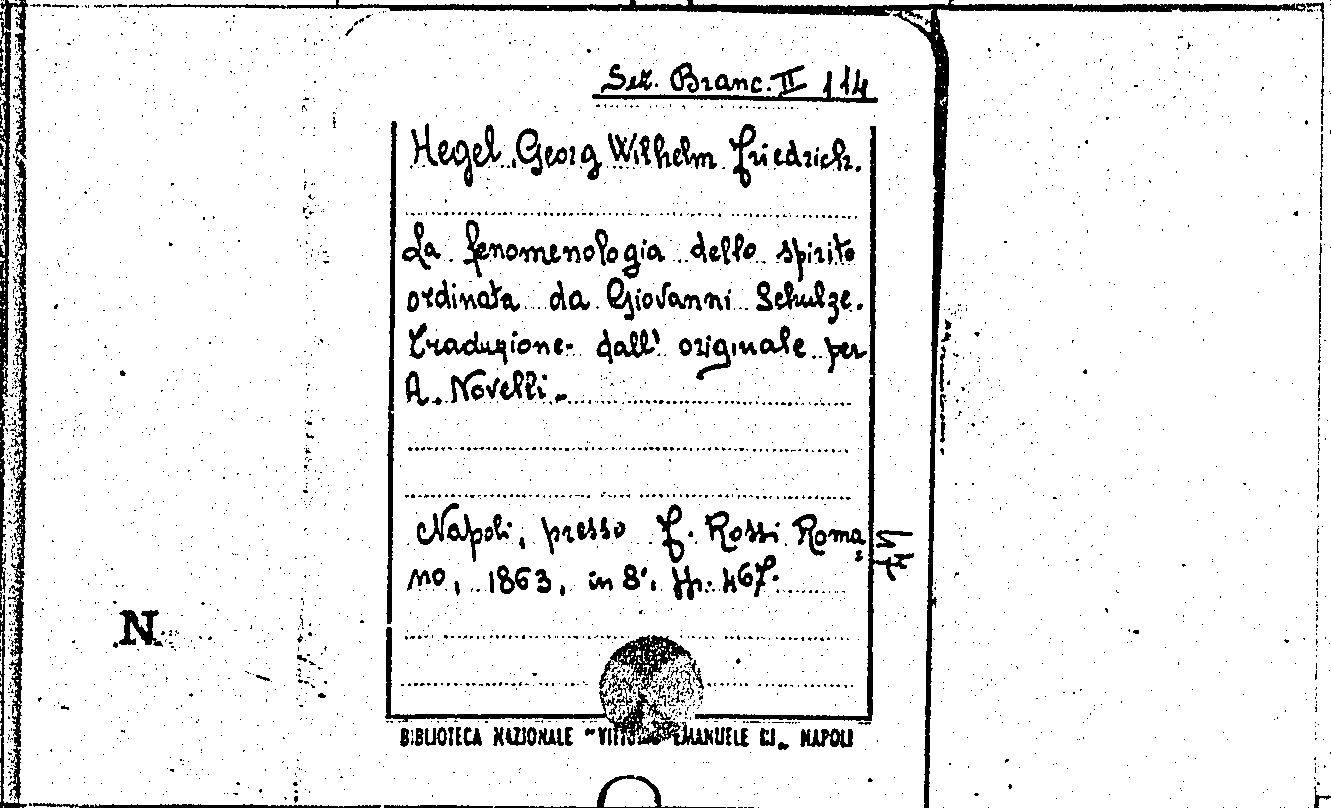 Sez. Branc. II 114
Hegel, Georg Wilhelm Friedrich.
La fenomenologia dello spirito
ordinata da Giovanni Schulze.
Traduzione dall' originale per
A. Novelli.
Napoli, presso F. Rossi Roma=
no, 1863, in 8°, pp. 467.
N
BIBLIOTECA NAZIONALE "VITTORIO EMANUELE III" NAPOLI